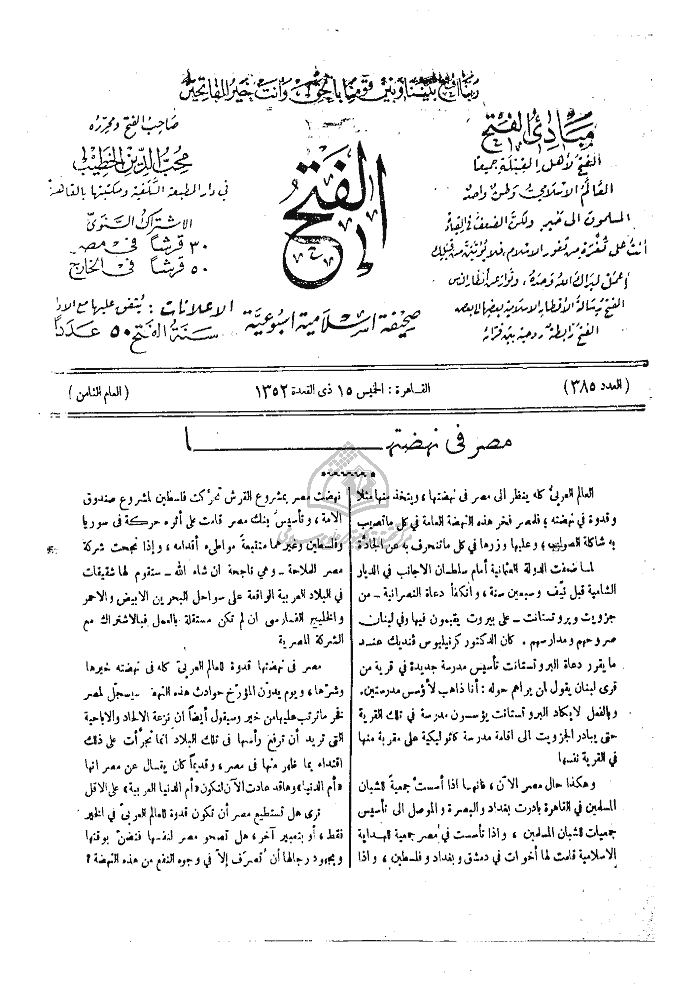 ربنا افتح بيننا وبين قومنا بالحق وأنت خير الفاتحين
مبادئ الفتح
الفتح لأهل القبلة جميعا
العالم الاسلامي وطن واحد
المسلمون الى خير ولكن الضعف في القيادة
أنت على ثغرة من ثغور الاسلام فلا يؤتين من قبلك
اعمل لله وحده، وتوار عن أنظار الناس
الفتح رسالة الأقطار الاسلامية بعضها الى بعض
الفتح رابطة روحية بين قرائه
الفتح
صحيفة اسلامية اسبوعية
صاحب الفتح ومحرره
محب الدين الخطيب
في دار المطبعة السلفية ومكتبتها بالقاهرة
الاشتراك السنوي
٣٠ قرشا في مصر
٥٠ قرشا في الخارج
الاعلانات : يتفق عليها مع الادارة
سنة الفتح ٥٠ عددا
(العدد ٣٨٥)
القاهرة : الخميس ١٥ ذي القعدة ١٣٥٢
(العام الثامن)
مصر في نهضتها
العالم العربي كله ينظر الى مصر في نهضتها، ويتخذ منها مثلا
وقدوة في نهضته، فلمصر فخر هذه النهضة العامة في كل ما تصيب
به شاكلة الصواب، وعليها وزرها في كل ما تنحرف به عن الجادّة
لما ضعفت الدولة العثمانية أمام سلطان الاجانب في الديار
الشامية قبل نيّف وسبعين سنة، وانكفأ دعاة النصرانية ــ من
جزويت وبروتستانت ــ على بيروت يقيمون فيها وفي لبنان
صروحهم ومدارسهم. كان الدكتور كرنيليوس فنديك عند
ما يقرر دعاة البروتستانت تأسيس مدرسة جديدة في قرية من
قرى لبنان يقول لمن يراهم حوله : أنا ذاهب لأؤسس مدرستين.
وبالفعل لا يكاد البروتستانت يؤسسون مدرسة في تلك القرية
حتى يبادر الجزويت الى اقامة مدرسة كاثوليكية على مقربة منها
في القرية نفسها
وهكذا حال مصر الآن، فانها اذا أسست جمعية للشبان
المسلمين في القاهرة بادرت بغداد والبصرة والموصل الى تأسيس
جمعيات للشبان المسلمين، واذا تأسست في مصر جمعية للهداية
الاسلامية قامت لها أخوات في دمشق وبغداد وفلسطين، واذا
نهضت مصر بمشروع القرش تحركت فلسطين لمشروع صندوق
الامة، وتأسيس بنك مصر قامت على أثره حركة في سوريا
وفلسطين وغيرهما متتبعةً مواطىء أقدامه، واذا نجحت شركة
مصر للملاحة ــ وهي ناجحة ان شاء الله ــ ستقوم لها شقيقات
في البلاد العربية الواقعة على سواحل البحرين الابيض والاحمر
والخليج الفارسي ان لم تكن مستقلة بالعمل فبالاشتراك مع
الشركة المصرية
مصر في نهضتها قدوة للعالم العربي كله في نهضته خيرها
وشرّها، ويوم يدوّن المؤرخ حوادث هذه النهضة سيسجل لمصر
فخر ما ترتب عليها من خير وسيقول أيضاً ان نزعة الالحاد والاباحية
التي تريد أن ترفع رأسها في تلك البلاد انما تجرأت على ذلك
اقتداء بما ظهر منها في مصر، وقديماً كان يقال عن مصر انها
«أم الدنيا» وهاقد عادت الآن لتكون «أم الدنيا العربية» على الاقل
ترى هل تستطيع مصر أن تكون قدوة للعالم العربي في الخير
فقط، أو بتعبير آخر، هل تصحو مصر لنفسها فتضنّ بوقتها
وبجهود رجالها أن تُصرف إلاّ في وجوه النفع من هذه النهضة ؟